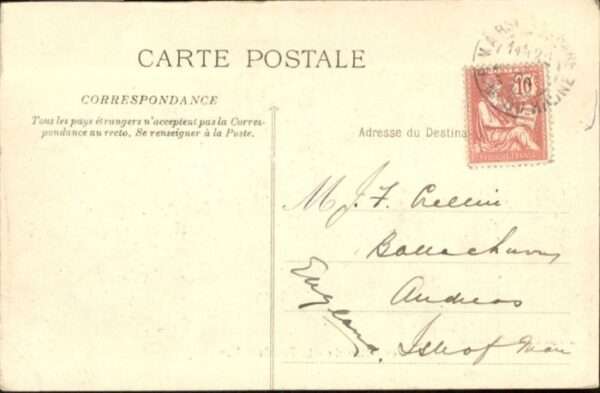 CARTE POSTALE
CORRESPONDANCE
Tous les pays étrangers n'acceptent pas la Corres-
pondance au recto. Se renseigner à la Poste.
Adresse du Destina
10
M J. F. Crellin
Ballachurry
Andreas
Isle of Man
England.